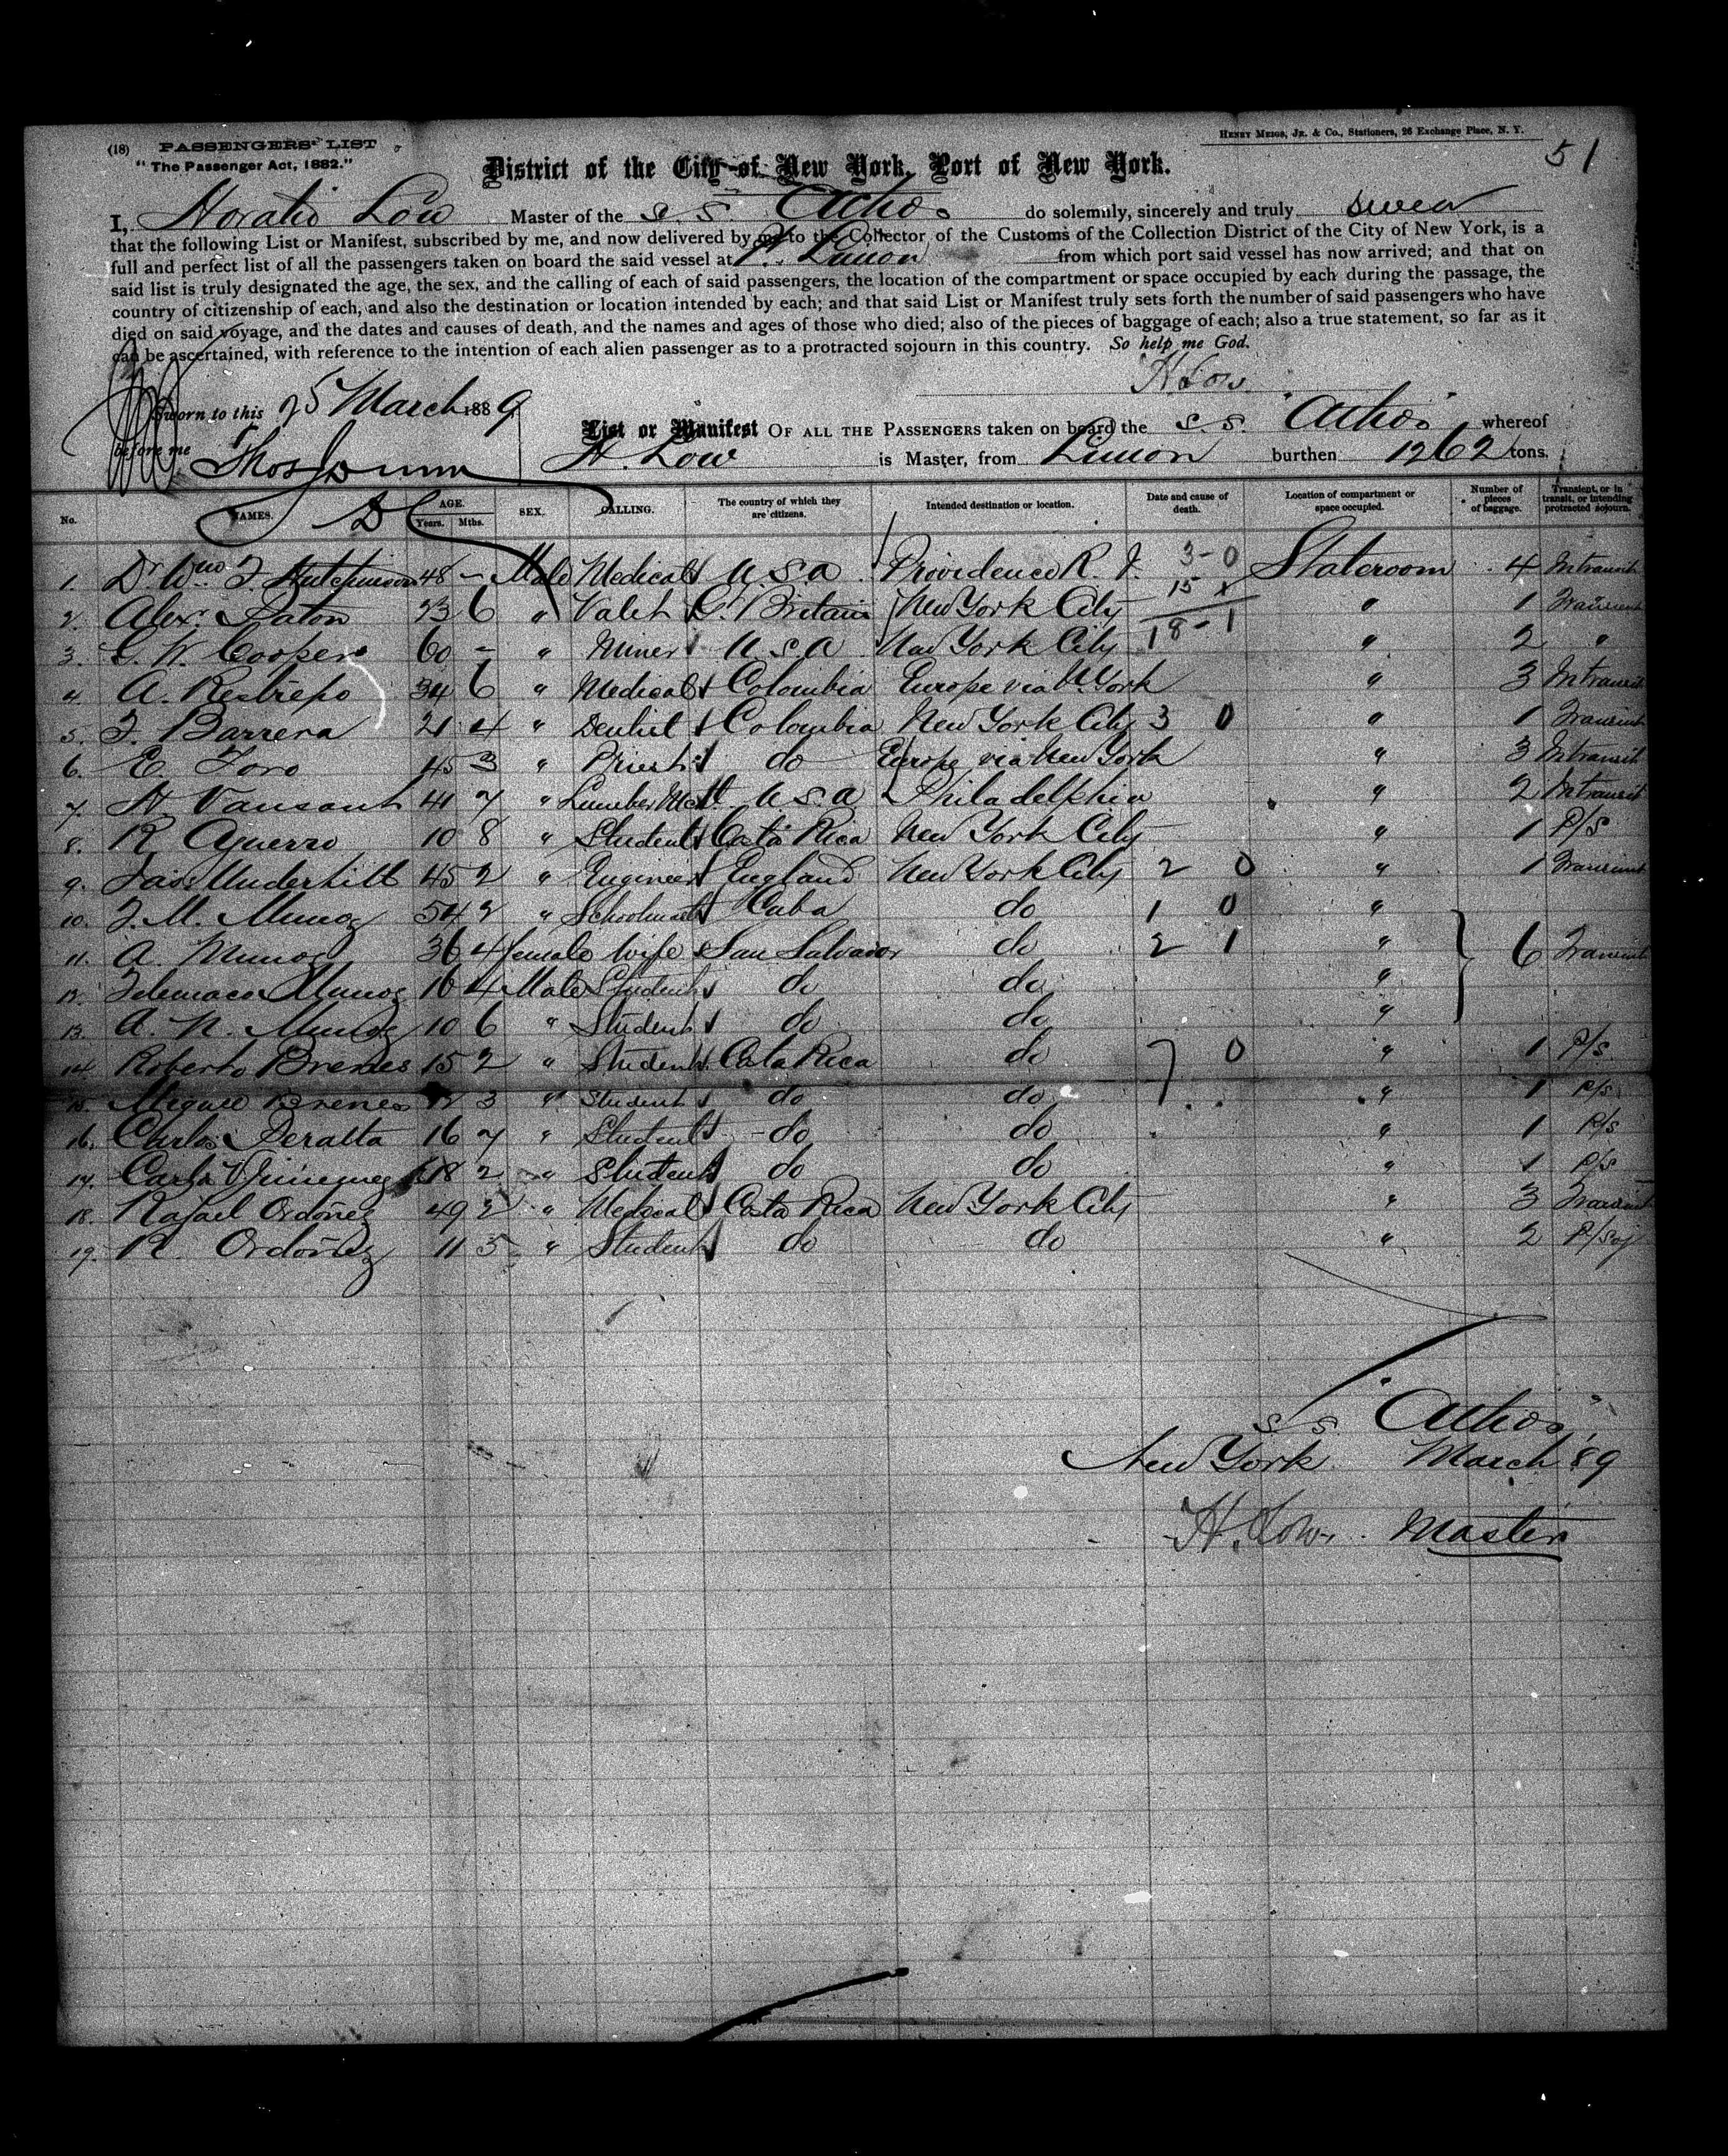 HENRY MEIGS, JR. & CO., Stationers, 26 Exchange Place, N. Y.
(18) PASSENGERS' LIST
51
"The Passenger Act, 1882."
District of the City of New York, Port of New York.
I, Horatio Low Master of the S. S. Athos do solemnly, sincerely and truly swear
that the following List or Manifest, subscribed by me, and now delivered by me to the Collector of the Customs of the Collection District of the City of New York, is a
full and perfect list of all the passengers taken on board the said vessel at Pt. Limon from which port said vessel has now arrived; and that on
said list is truly designated the age, the sex, and the calling of each of said passengers, the location of the compartment or space occupied by each during the passage, the
country of citizenship of each, and also the destination or location intended by each; and that said List or Manifest truly sets forth the number of said passengers who have
died on said voyage, and the dates and causes of death, and the names and ages of those who died; also of the pieces of baggage of each; also a true statement, so far as it
can be ascertained, with reference to the intention of each alien passenger as to a protracted sojourn in this country. So help me God.
H Low
Sworn to this 25 March 1889
List or Manifest OF ALL THE PASSENGERS taken on board the S. S. "Athos" whereof
before me Thos
H. Low is Master, from Limon burthen 1262 tons.
No. NAMES. AGE. Years. Mths. SEX. CALLING. The country of which they are citizens. Intended destination or location. Date and cause of death. Location of compartment or space occupied. Number of pieces of baggage. Transient, or in transit, or intending protracted sojourn.
1. Dr Wm F. Hutchinson 48 - Male Medical U.S.A. Providence R. I. 3-0 Stateroom 4 Intransit
2. Alex. Paton 23 6 " Valet Gt Britain New York City 15 x " 1 Transient
3. G. W. Cooper 60 - " Miner U.S.A New York City 18-1 " 2 "
4. A. Restrepo 34 6 " Medical Colombia Europe via N. York " 3 Intransit
5. F. Barrera 21 4 " Dentist Colombia New York City 3 0 " 1 Transient
6. E. Toro 45 3 " Priest do Europe via New York " 3 Intransit
7. H Vansant 41 7 " Lumber Mcht U.S.A Philadelphia " 2 Intransit
8. R Aguerro 10 8 " Student Costa Rica New York City " 1 P/S
9. Jas. Underhill 45 2 " Engineer England New York City 2 0 " 1 Transient
10. F. M. Munoz 54 2 " Schoolmast Cuba do 1 0 "
11. A. Munoz 36 4 female Wife San Salvador do 2 1 " 6 Transient
12. Telemaco Munoz 16 4 Male Student do do "
13. A. N. Munoz 10 6 " Student do do "
14. Roberto Brenes 15 2 " Student Costa Rica do 7 0 " 1 P/S
15. Miguel Brenes 12 3 " Student do do " 1 P/S
16. Carlos Peralta 16 7 " Student do do " 1 P/S
17. Carlos 18 2 " Student do do " 1 P/S
18. Rafael Ordoñez 49 2 " Medical Costa Rica New York City " 3 Transient
19. R. Ordoñez 11 5 " Student do do " 2 P/Soj
S S "Athos"
New York March '89
H. Low Master